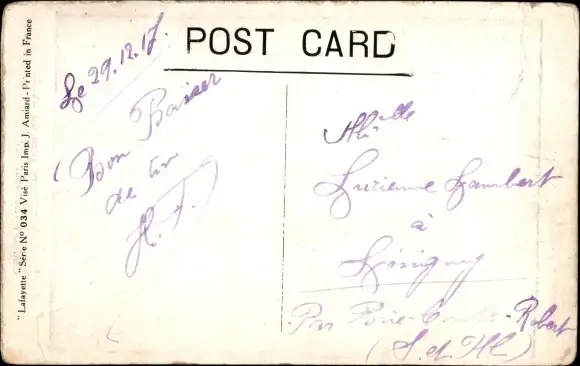 POST CARD
Le 29.12.17.
Bon Baiser
de
H. F.
Mlle
Lucienne Lambert
à
Lésigny
Par Brie-Comte-Robert
(S. et M)
"Lafayette" Série No 034 Visé Paris Imp. J. Amiard - Printed in France